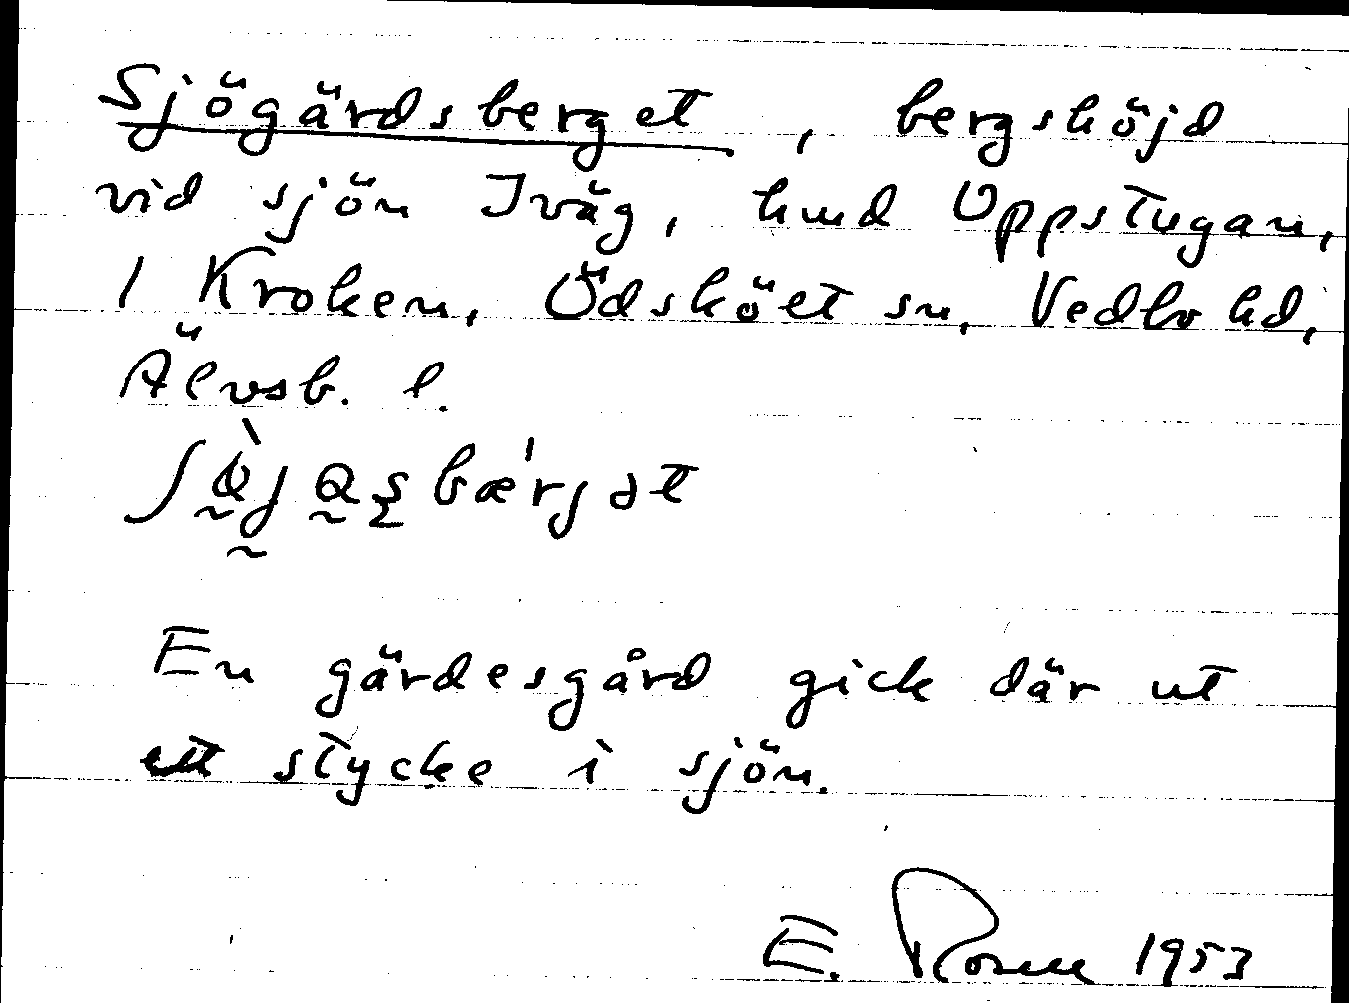 Sjögärdsberget, bergshöjd
vid sjön Iväg, hmd Uppstugan,
1 Kroken, Ödsköet sn, Vedbo hd,
Älvsb. l.
bærjət
En gärdesgård gick där ut
ett stycke i sjön.
E. Rosell 1953